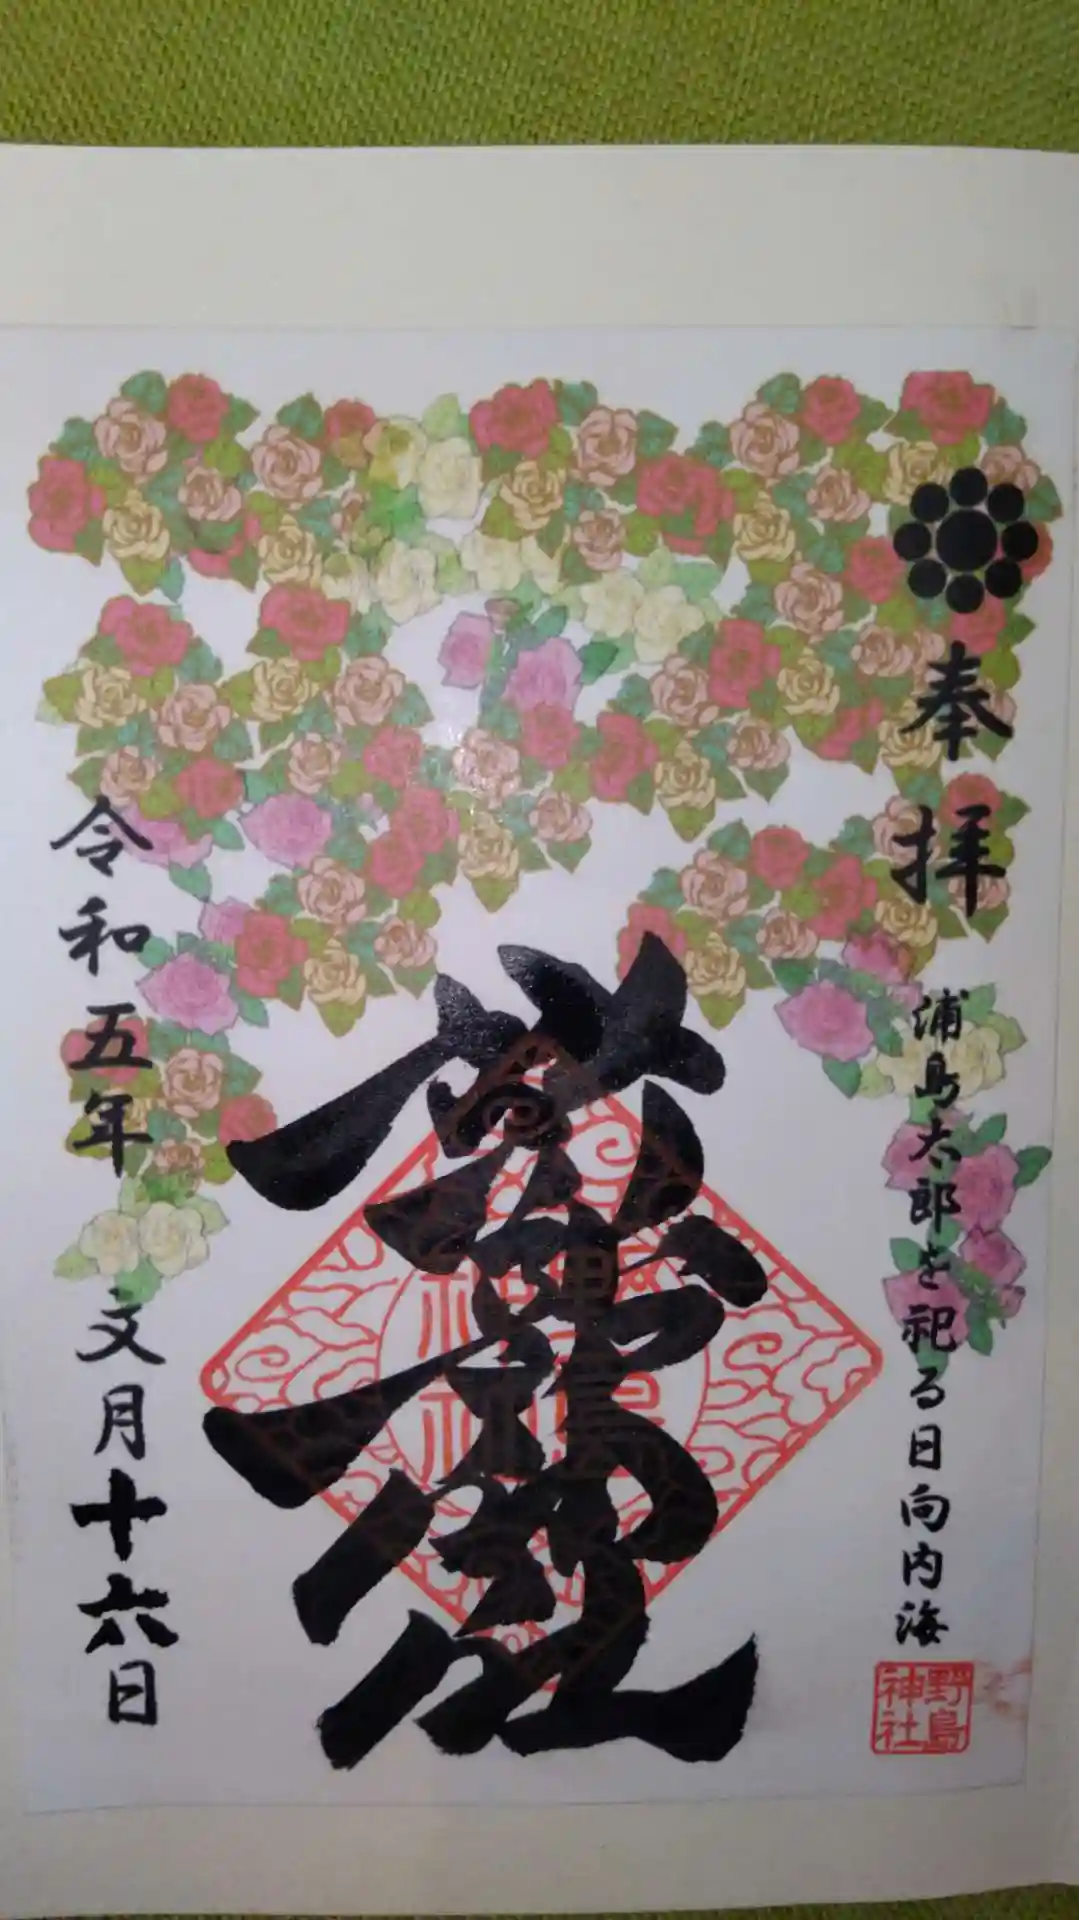 奉拝
浦島太郎を祀る日向内海
野島
神社
令和五年文月十六日